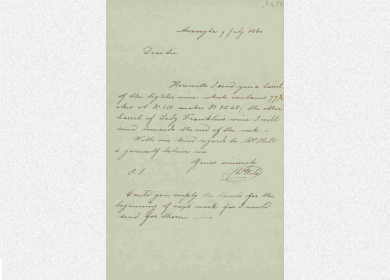 9 July 18
Dear Sir
Herewith I send you a barrel
of the lighter wine which contains 77 7/8
makes the other
barrel of Lady Franklin's wine I will
send towards the end of the week.
With our kind regards to Mr Hall
& yourself believe me
Yours sincerely
P.S.
Could you empty the barrels for the
beginning of next week for I would
send for them